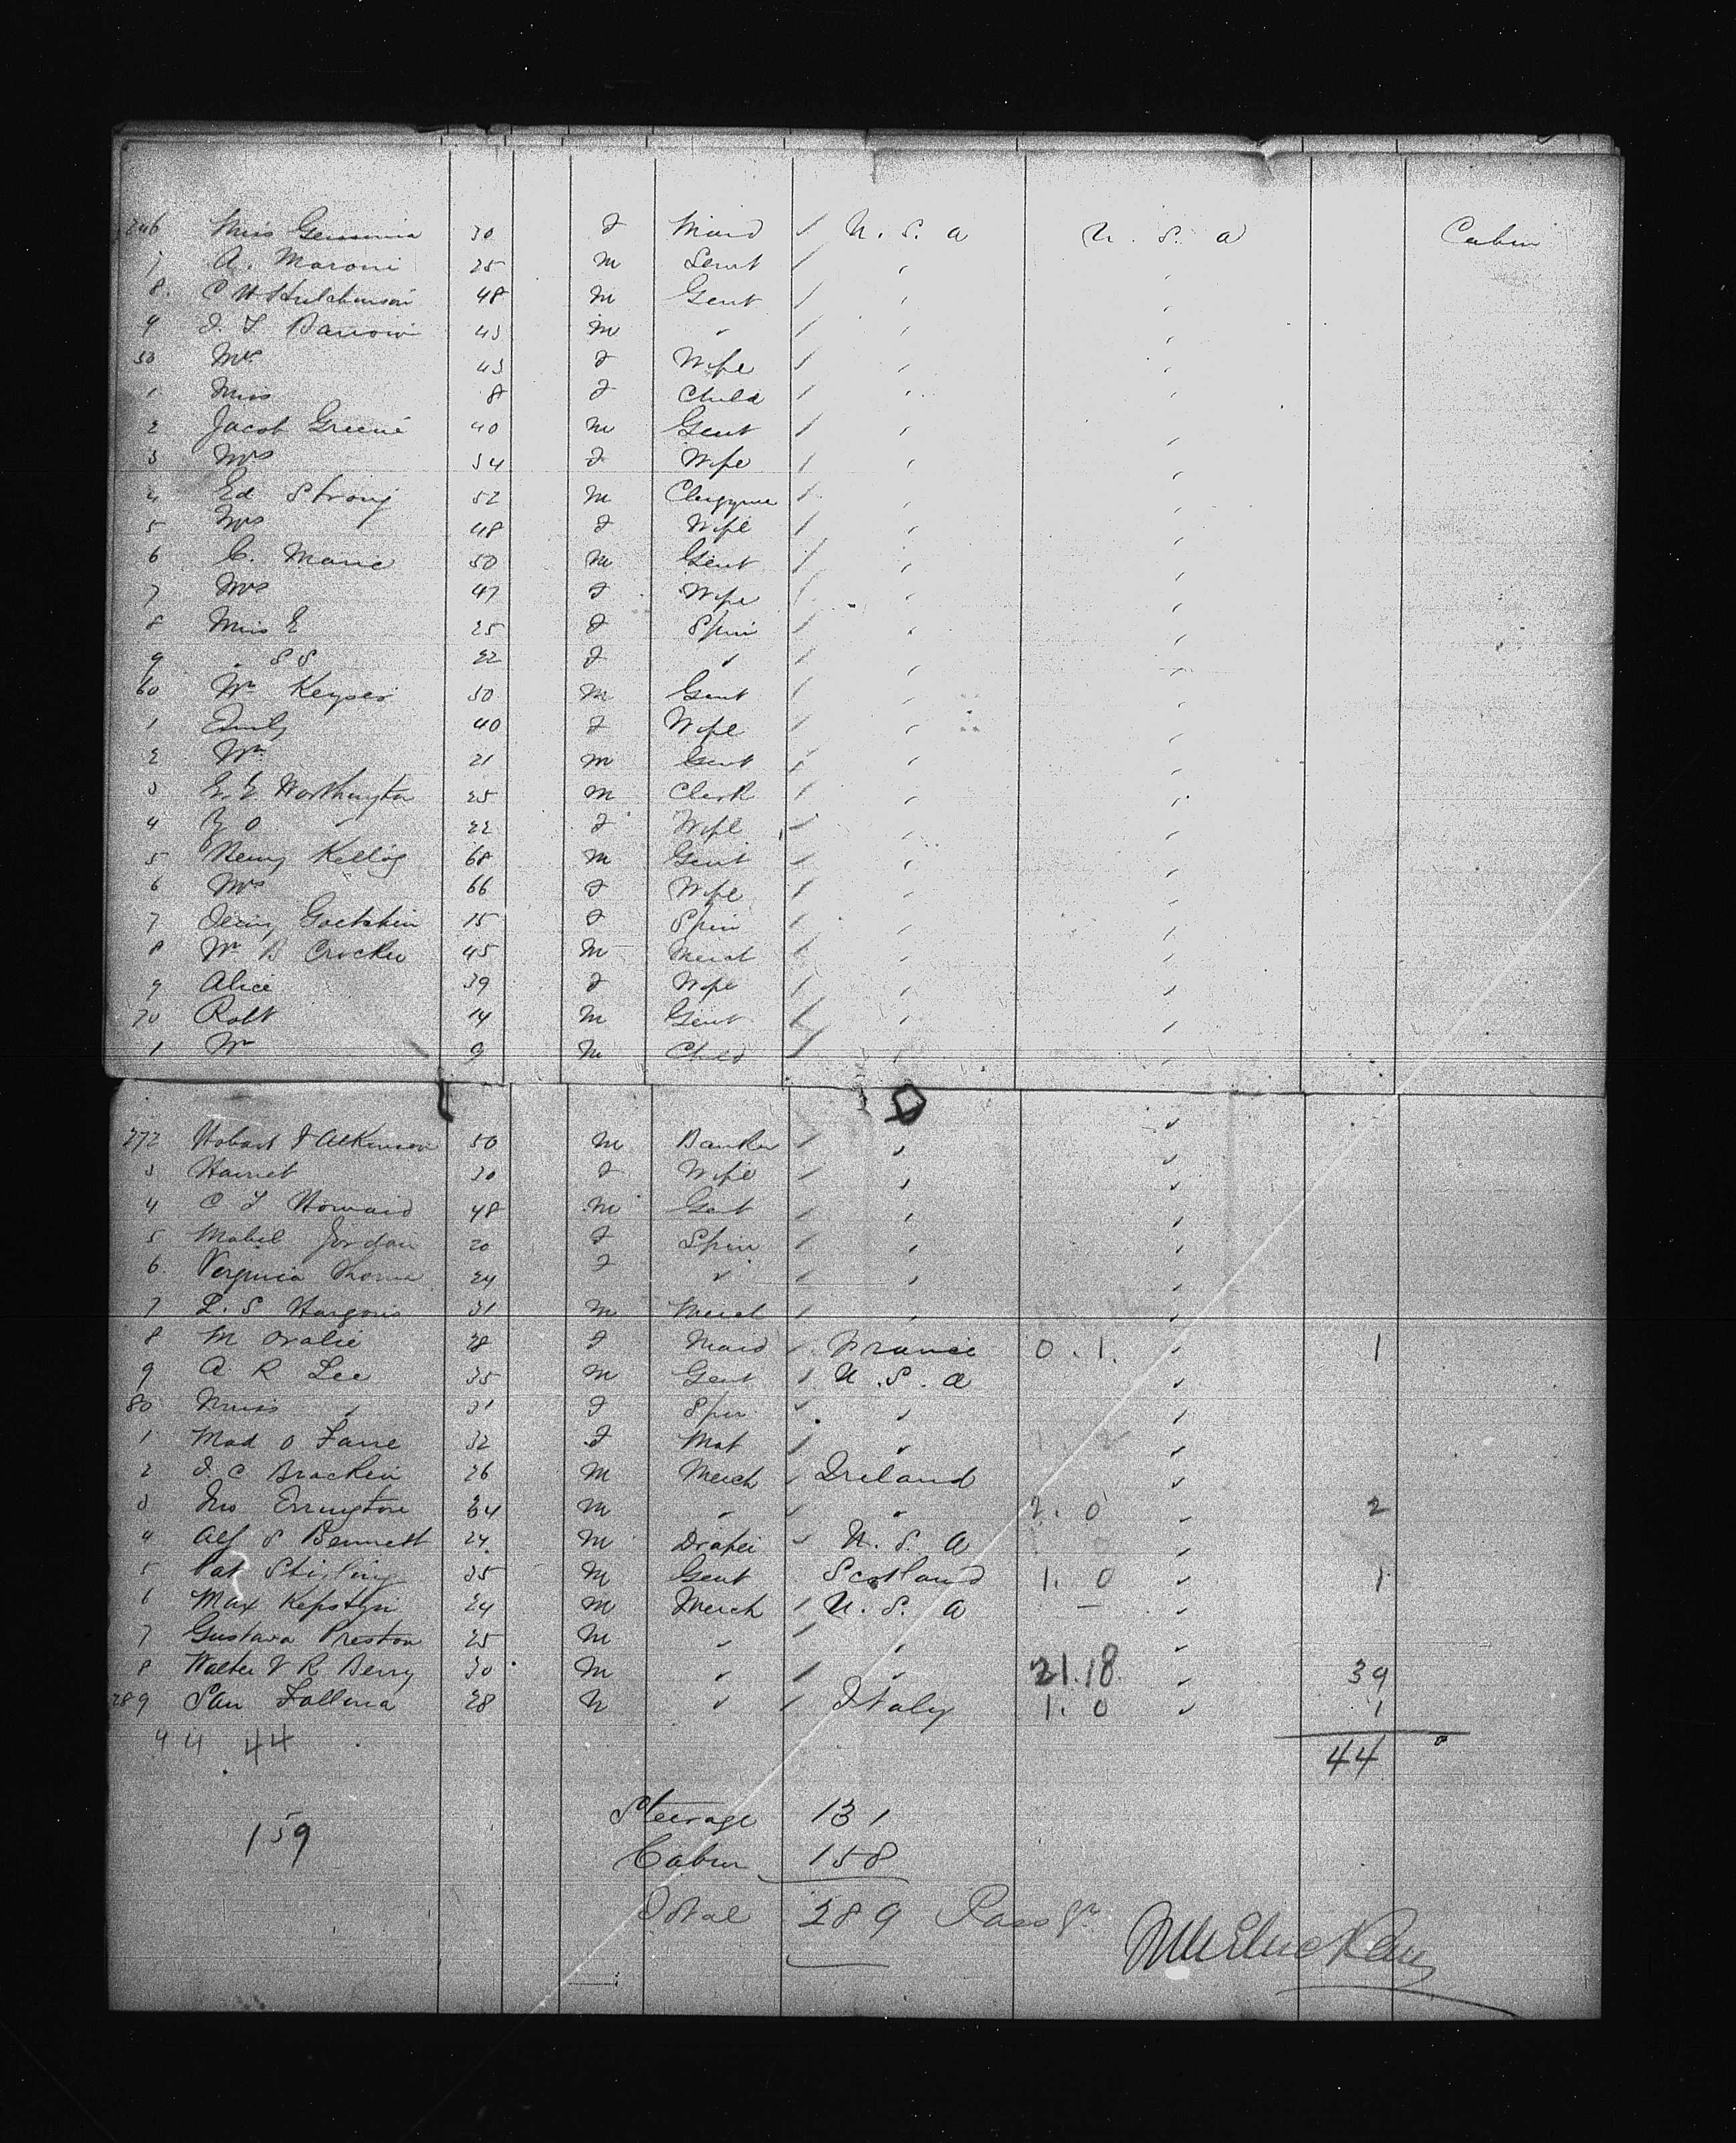 246 Miss 30 F Maid / U. S. A U. S. A Cabin
7 A. Maroni 25 M Servt / " "
8 C H Hutchinson 48 M Gent / " "
9 43 M " / " "
50 Mrs 43 F Wife / " "
1 Miss 8 F Child / " "
2 Jacob Greene 40 M Gent / " "
3 Mrs 34 F Wife / " "
4 Ed Strong 52 M / " "
5 Mrs 48 F Wife / " "
6 C. Marie 50 M Gent / " "
7 Mrs 47 F Wife / " "
8 Miss E 25 F Spin / " "
9 " S S 22 F " / " "
60 Wm Keyser 50 M Gent / " "
1 Emily 40 F Wife / " "
2 Wm 21 M Gent / " "
3 Worthington 25 M Clerk / " "
4 22 F Wife / " "
5 Henry Kellog 68 M Gent / " "
6 Mrs 66 F Wife / " "
7 15 F Spin / " "
8 Wm B Crocker 45 M Merct / " "
9 Alice 39 F Wife / " "
70 Robt 14 M Gent / " "
1 Wm 9 M Child / " "
272 Hobart F Atkinson 50 M Banker / " "
3 Harriet 30 F Wife / " "
4 C F Howard 48 M Gent / " "
5 Mabel Jordan 20 F Spin / " "
6 Virginia 24 F " / " "
7 L. S Hargous 31 M Merct / " "
8 M Oralie 28 F Maid / France 0. 1. " 1
9 A R Lee 35 M Gent / U. S. A "
80 Miss " 31 F Spin " " "
1 Mad O Lane 32 F Mat / " "
2 J. C Bracken 26 M Merch / Ireland "
3 Jno Errington 34 M " / " 2. 0 " 2
4 Alf S Bennett 24 M Draper / U. S. A "
5 Pat Stirling 35 M Gent Scotland 1. 0 " 1
6 Max 24 M Merch / U. S. A "
7 Gustava Preston 25 M " / " "
8 Walter V R Berry 30 M " / " 21.18. " 39
289 28 M " / Italy 1. 0 " 1
44 44
44
Steerage 131
159
Cabin 158
Total 289 Passgrs